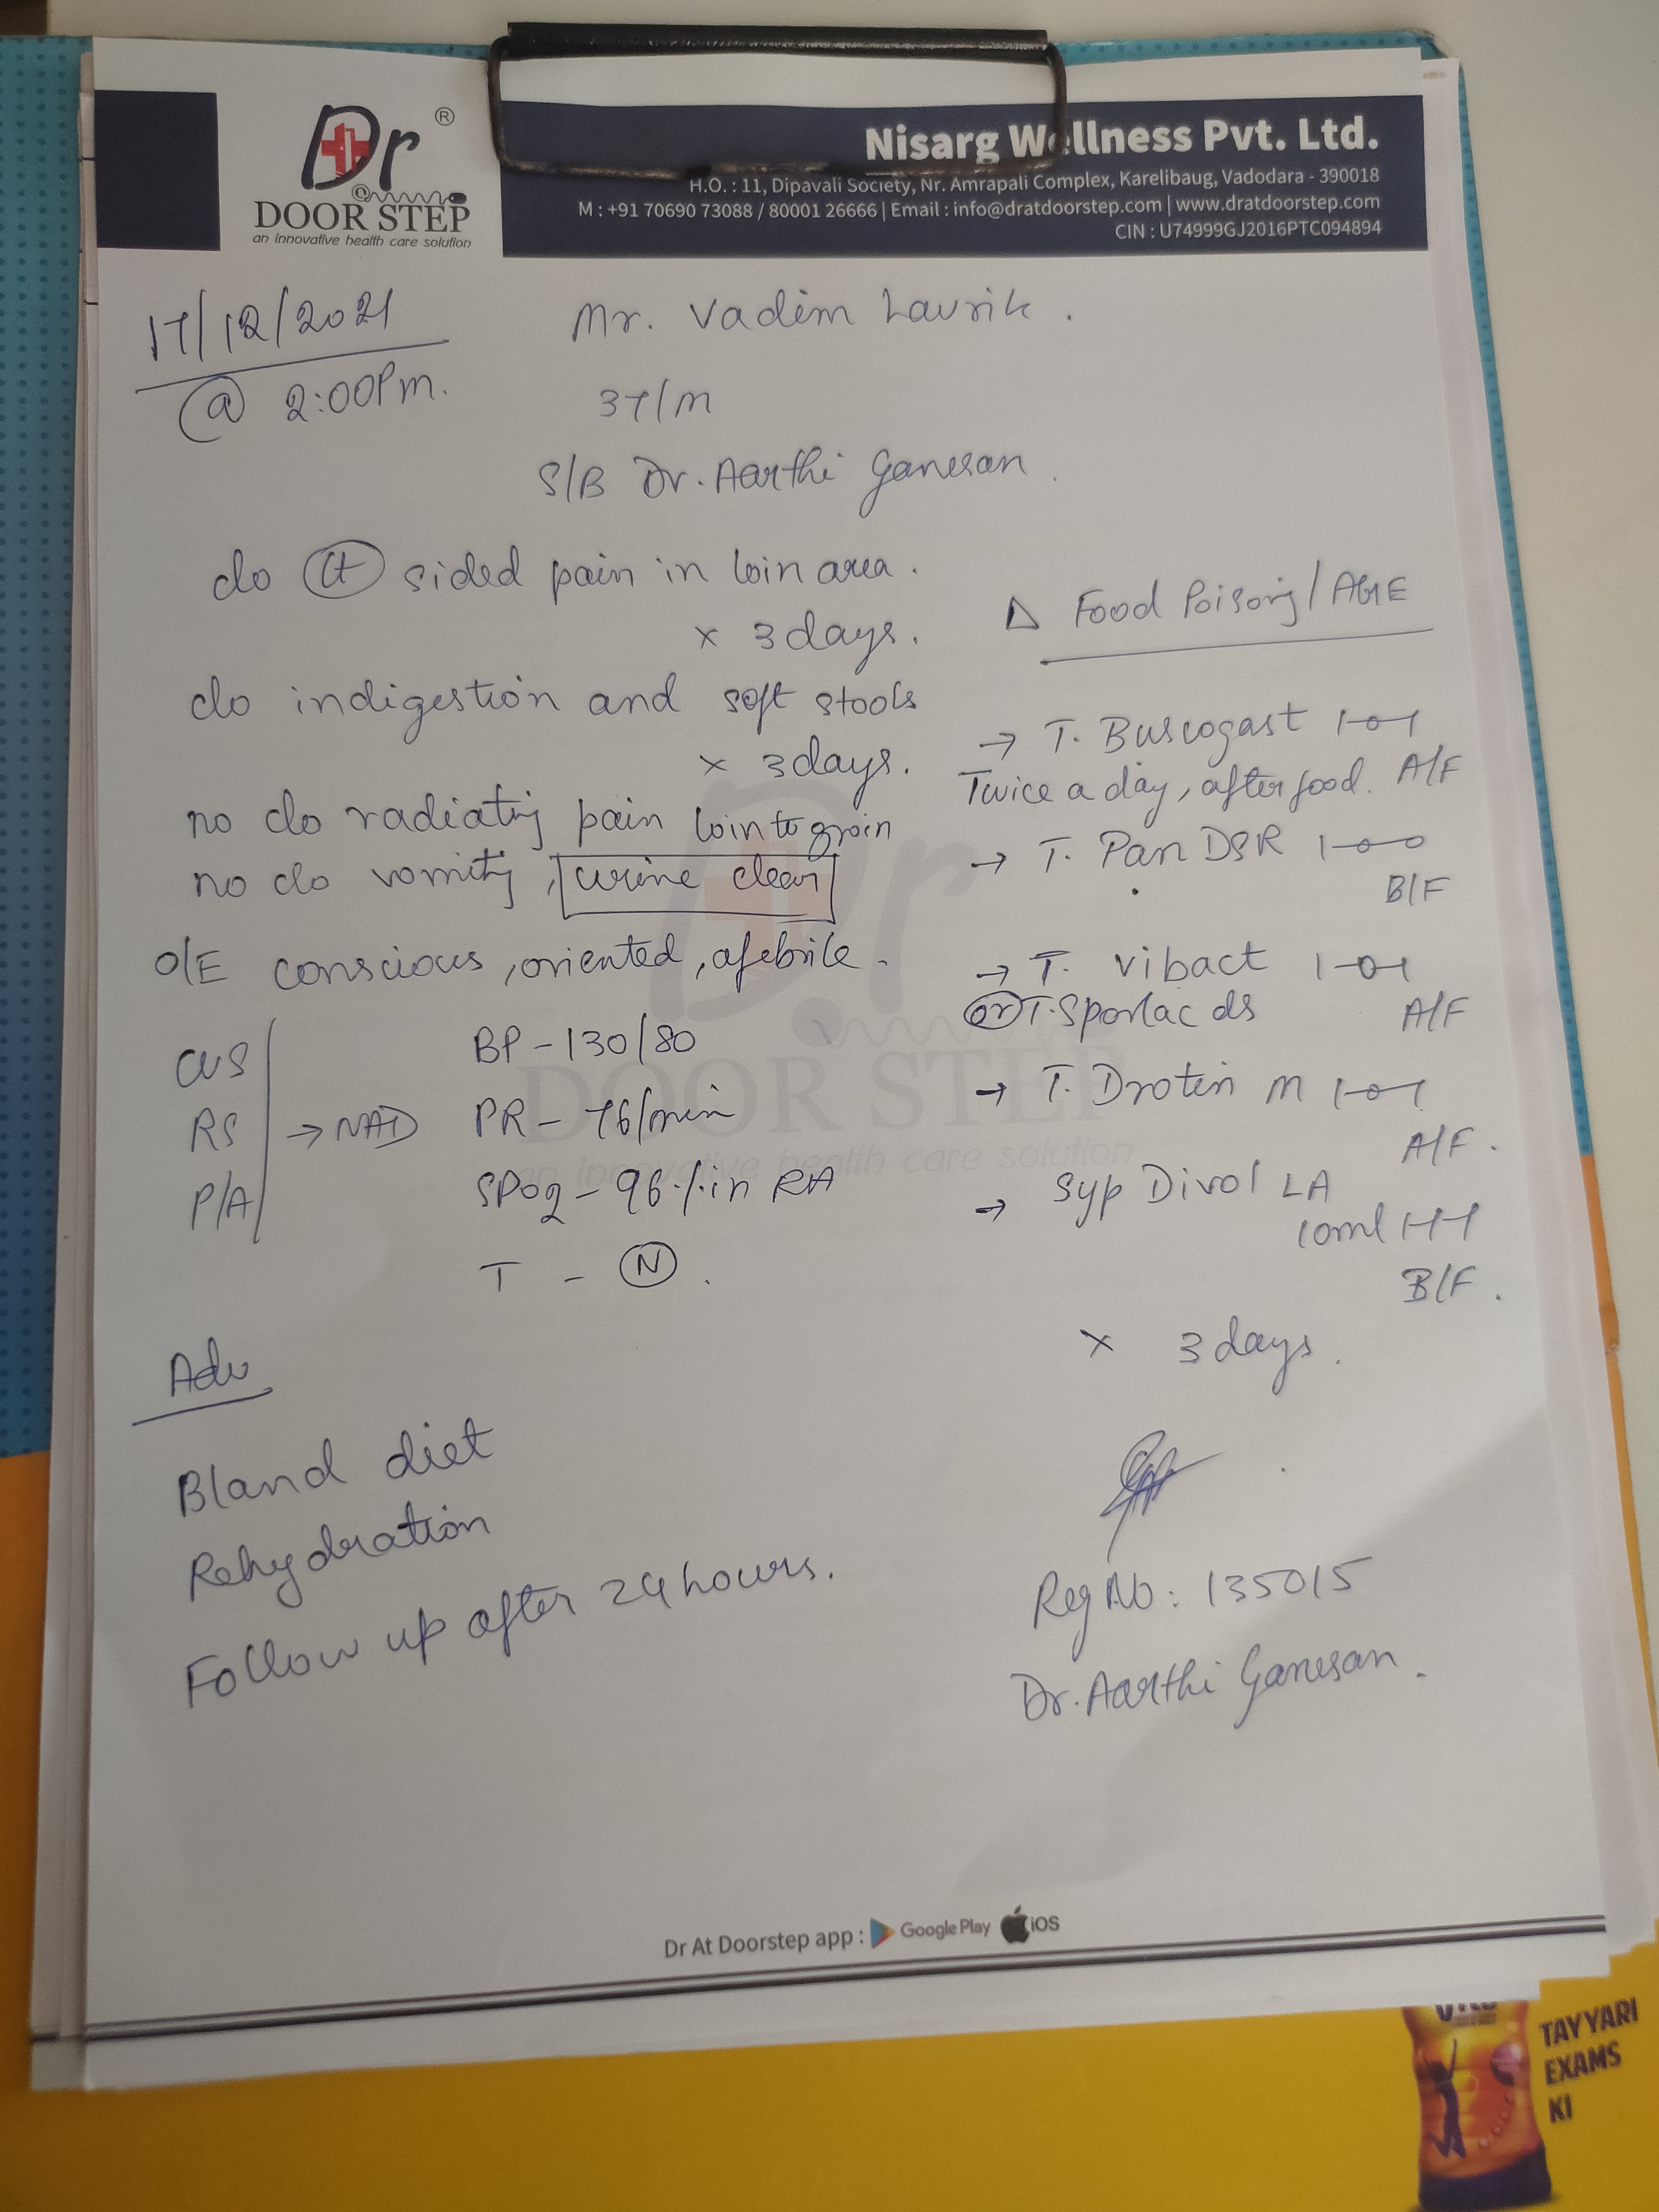 Dr ®
@
DOOR STEP
an innovative health care solution
Nisarg Wellness Pvt. Ltd.
H.O. : 11, Dipavali Society, Nr. Amrapali Complex, Karelibaug, Vadodara - 390018
M : +91 70690 73088 / 80001 26666 | Email : info@dratdoorstep.com | www.dratdoorstep.com
CIN : U74999GJ2016PTC094894
17/12/2021
@ 2:00Pm.
Mr. Vadim Lavrik.
37/M
S/B Dr. Aarthi Ganesan.
c/o Lt sided pain in loin area.
x 3 days.
c/o indigestion and soft stools
x 3 days.
no c/o radiating pain loin to groin
no c/o vomiting, urine clear
O/E conscious, oriented, afebrile.
CVS
RS → NAD
P/A
BP - 130/80
PR - 76/min
SPO2 - 96% in RA
T - N.
Adv
Bland diet
Rehydration
Follow up after 24 hours.
Δ Food Poisoning/AGE
→ T. Buscogast 1-0-1
Twice a day, after food. A/F
→ T. Pan DSR 1-0-0
B/F
→ T. vibact 1-0-1
or T. Sporlac ds A/F
→ T. Drotin M 1-0-1
A/F.
→ Syp Divol LA
10ml 1-1-1
B/F.
x 3 days.
Reg No: 135015
Dr. Aarthi Ganesan.
Dr
DOOR STEP
an innovative health care solution
Dr At Doorstep app : Google Play iOS
TAYYARI
EXAMS
KI